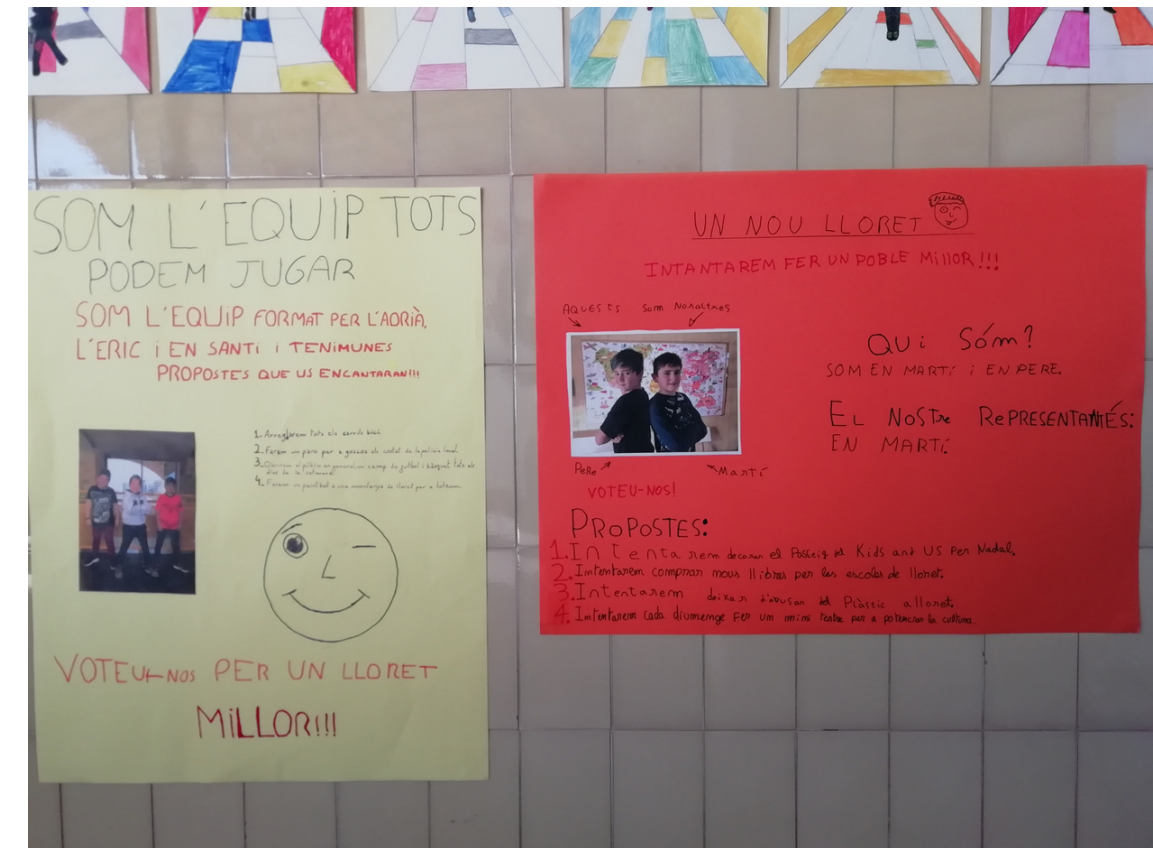 SOM L'EQUIP TOTS
PODEM JUGAR
SOM L'EQUIP FORMAT PER L'ADRIÀ,
L'ERIC i EN SANTI i TENIMUNES
PROPOSTES QUE US ENCANTARAN!!!
1. Arreglarem tots els carrils bici.
2. Farem un parc per a gossos al costat de la policia local.
3. al públic en general, un camp de futbol i bàsquet tots els
dies de la setmana.
4. Farem un paintball a una muntanya de lloret per a tothom.
VOTEU-NOS PER UN LLORET
MILLOR!!!
UN NOU LLORET
INTANTAREM FER UN POBLE MILLOR!!!
AQUESTS SOM NOSALTRES
QUi SÓM?
SOM EN MARTÍ i EN PERE.
EL NOSTRE REPRESENTANT ÉS:
EN MARTÍ
PERE MARTÍ
VOTEU-NOS!
PROPOSTES:
1. Intentarem decorar el Passeig del Kids and US Per Nadal.
2. Intentarem comprar nous llibres per les escoles de lloret.
3. Intentarem deixar d'abusar del Plàstic a lloret.
4. Intentarem cada diumenge FER un mini teatre per a potenciar la cultura.